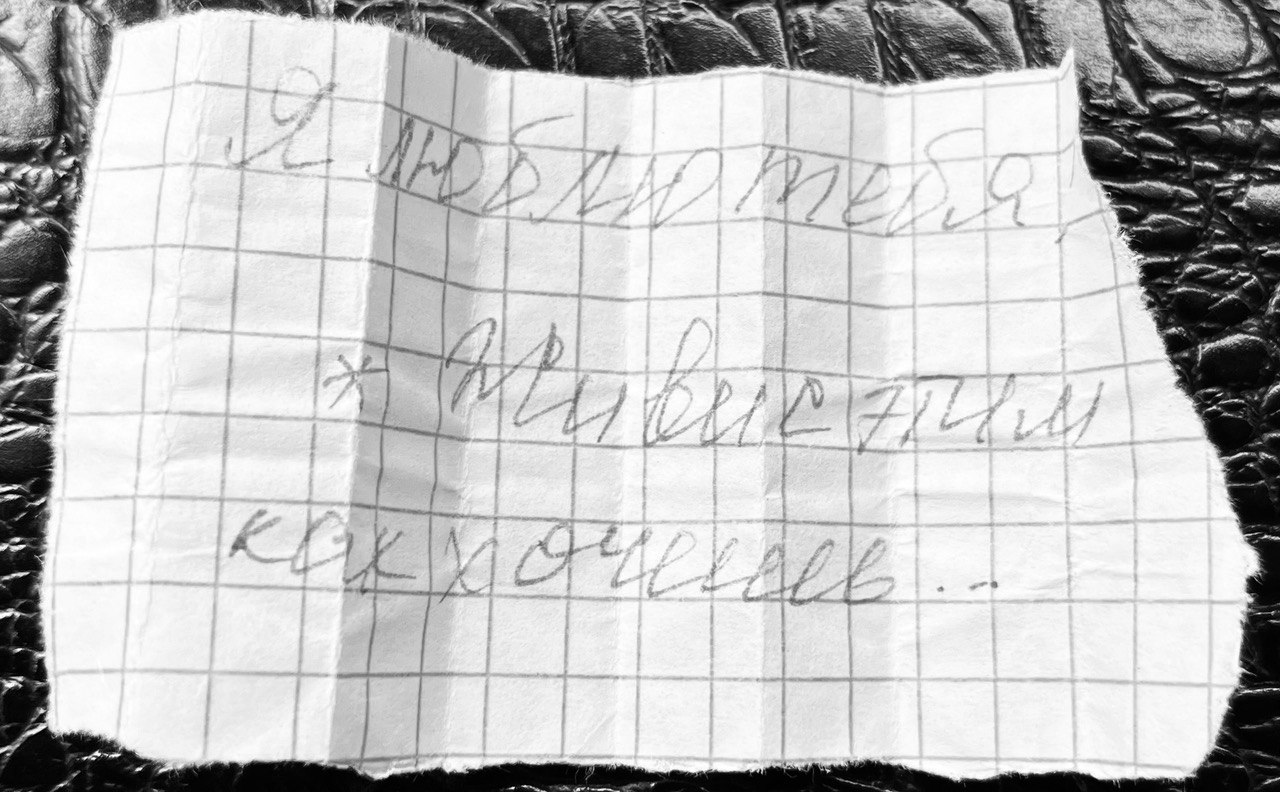 Я люблю тебя!
* Живи с этим
как хочешь...